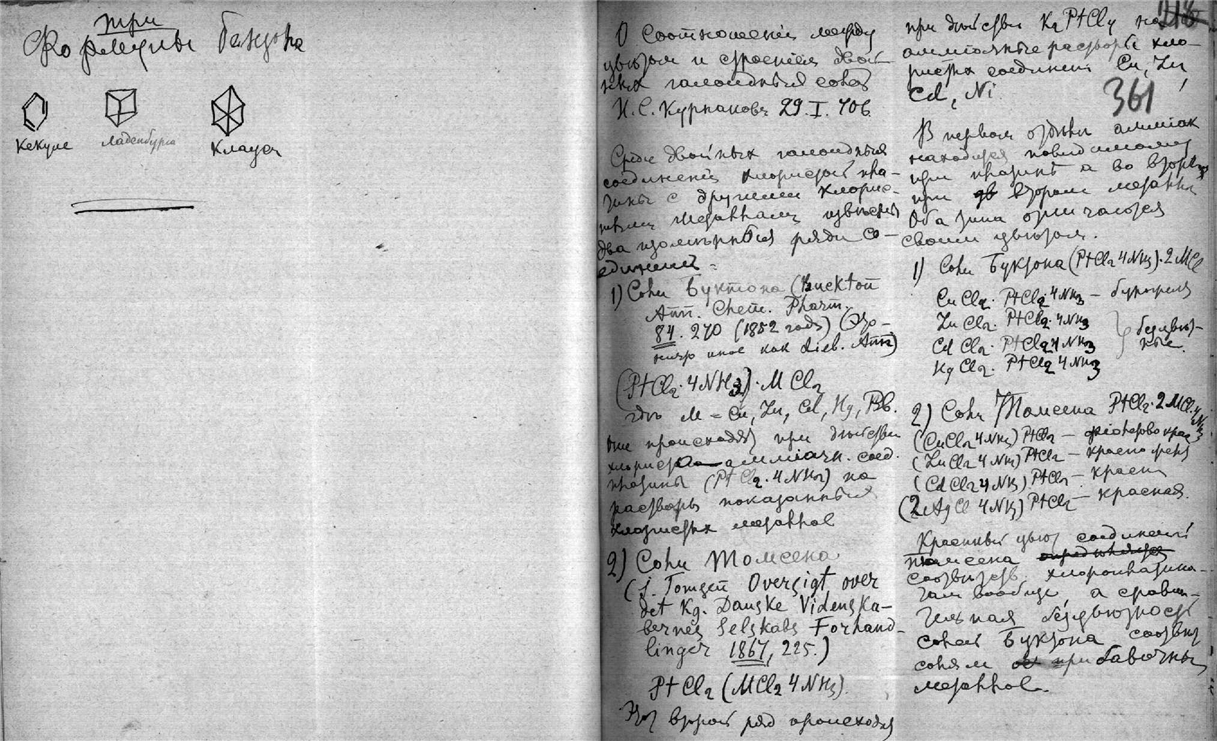 три
Формулы бензола
Кекуле
Ладенбурга
Клауса
О соотношении между
цветом и строением двой-
ных галоидных солей
Н. С. Курнаковъ 29.I.706.
Среди двойных галоидных
соединений хлористой пла-
тины с другими хлорис-
тыми металлами известны
два изомерных ряда со-
единений
1) Соли Буктона (Buckton
Ann. Chem. Pharm.
84. 270 (1852 года) (Это
ничто иное как Lieb. Ann)
(PtCl2·4NH3)·MCl2
где M = Cu, Zn, Cd, Hg, Pb.
они происходят при действии
хлориста аммиачн. соед.
платины (PtCl2·4NH3) на
растворы показанных
хлористых металлов
2) Соли Томсена
(J. Tomsen Oversigt over
det Kg. Danske Videnska-
bernes Selskabs Forhand-
linger 1867, 225.)
PtCl2 (MCl2 4NH3).
Этот второй ряд происходит
при действии K2PtCl4 на
аммиачные растворы хло-
ристых соединений Cu, Zn,
Cd, Ni.
361
В первом аммиак
находится повидимому
при платине а во втором
при втором металле
Оба типа отличаются
своим цветом.
1) Соли Буктона (PtCl2 4NH3)·2MCl
CuCl2. PtCl2·4NH3 –
ZnCl2. PtCl2·4NH3
CdCl2. PtCl2 4NH3
HgCl2. PtCl2 4NH3
бесцвет-
ные.
2) Соли Томсена PtCl2·2MCl 4NH3
(CuCl2 4NH3) PtCl2 – фіолетово крас
(ZnCl2 4NH3) PtCl2 –
(CdCl2 4NH3) PtCl2 – красн
(2AgCl 4NH3) PtCl2 – красная.
Красный цвет соединений
Томсена
соответств. хлороплатини-
там вообще а сравни-
тельная бесцветность
солей Буктона соответ
солям прибавочных
металлов.